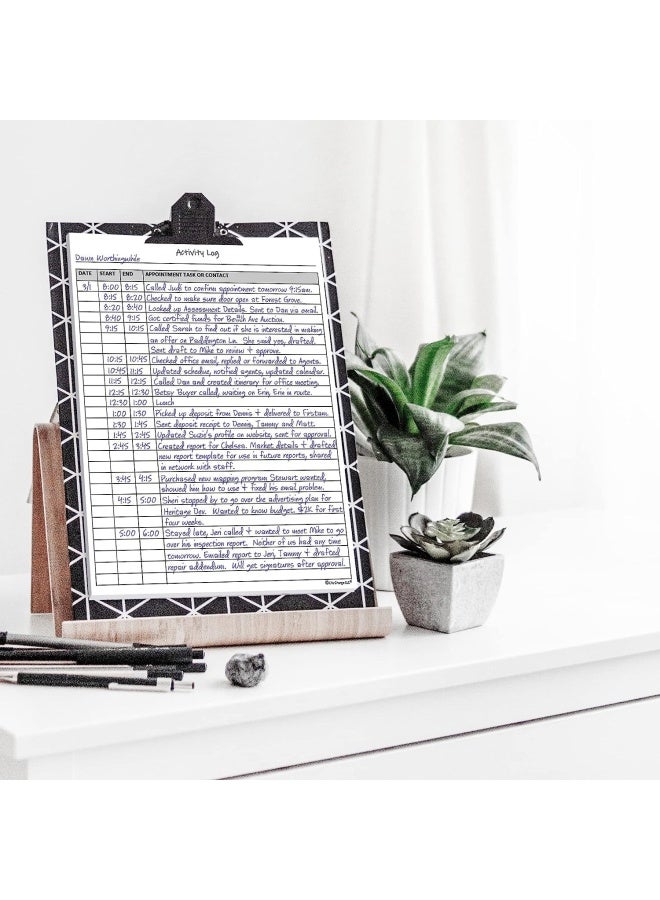 Activity Log
Dawn Worthingwhile
DATE START END APPOINTMENT TASK OR CONTACT
3/1 8:00 8:15 Called Judi to confirm appointment tomorrow 9:15am.
8:15 8:20 Checked to make sure door open at Forest Grove.
8:20 8:40 Looked up Assessment Details. Sent to Dan via email.
8:40 9:15 Got certified funds for Beach Ave Auction.
9:15 10:15 Called Sarah to find out if she is interested in making
an offer on Paddington Ln. She said yes, drafted.
Sent draft to Mike to review + approve.
10:15 10:45 Checked office email, replied or forwarded to Agents.
10:45 11:15 Updated schedue, notified agents, updated calendar.
11:15 12:15 Called Dan and created itinerary for office meeting.
12:15 12:30 Betsy Buyer called, waiting on Erin, Erin in route.
12:30 1:00 Lunch
1:00 1:30 Picked up deposit from Dennis + delivered to Firstam.
1:30 1:45 Sent deposit receipt to Dennis, Tammy and Matt.
1:45 2:45 Updated Suzie's profile on website, sent for approval.
2:45 3:45 Created report for Chelsea. Market details + drafted
new report template for use in future reports, shared
in network with staff.
3:45 4:15 Purchased new mapping program Stewart wanted,
showed him how to use + fixed his email problem.
4:15 5:00 Sheri stopped by to go over the advertising plan for
Heritage Dev. Wanted to know budget, $2K for first
four weeks.
5:00 6:00 Stayed late, Jeri called + wanted to meet Mike to go
over his inspection report. Neither of us had any time
tomorrow. Emailed report to Jeri, Tammy + drafted
repair addendum. Will get signatures after approval.